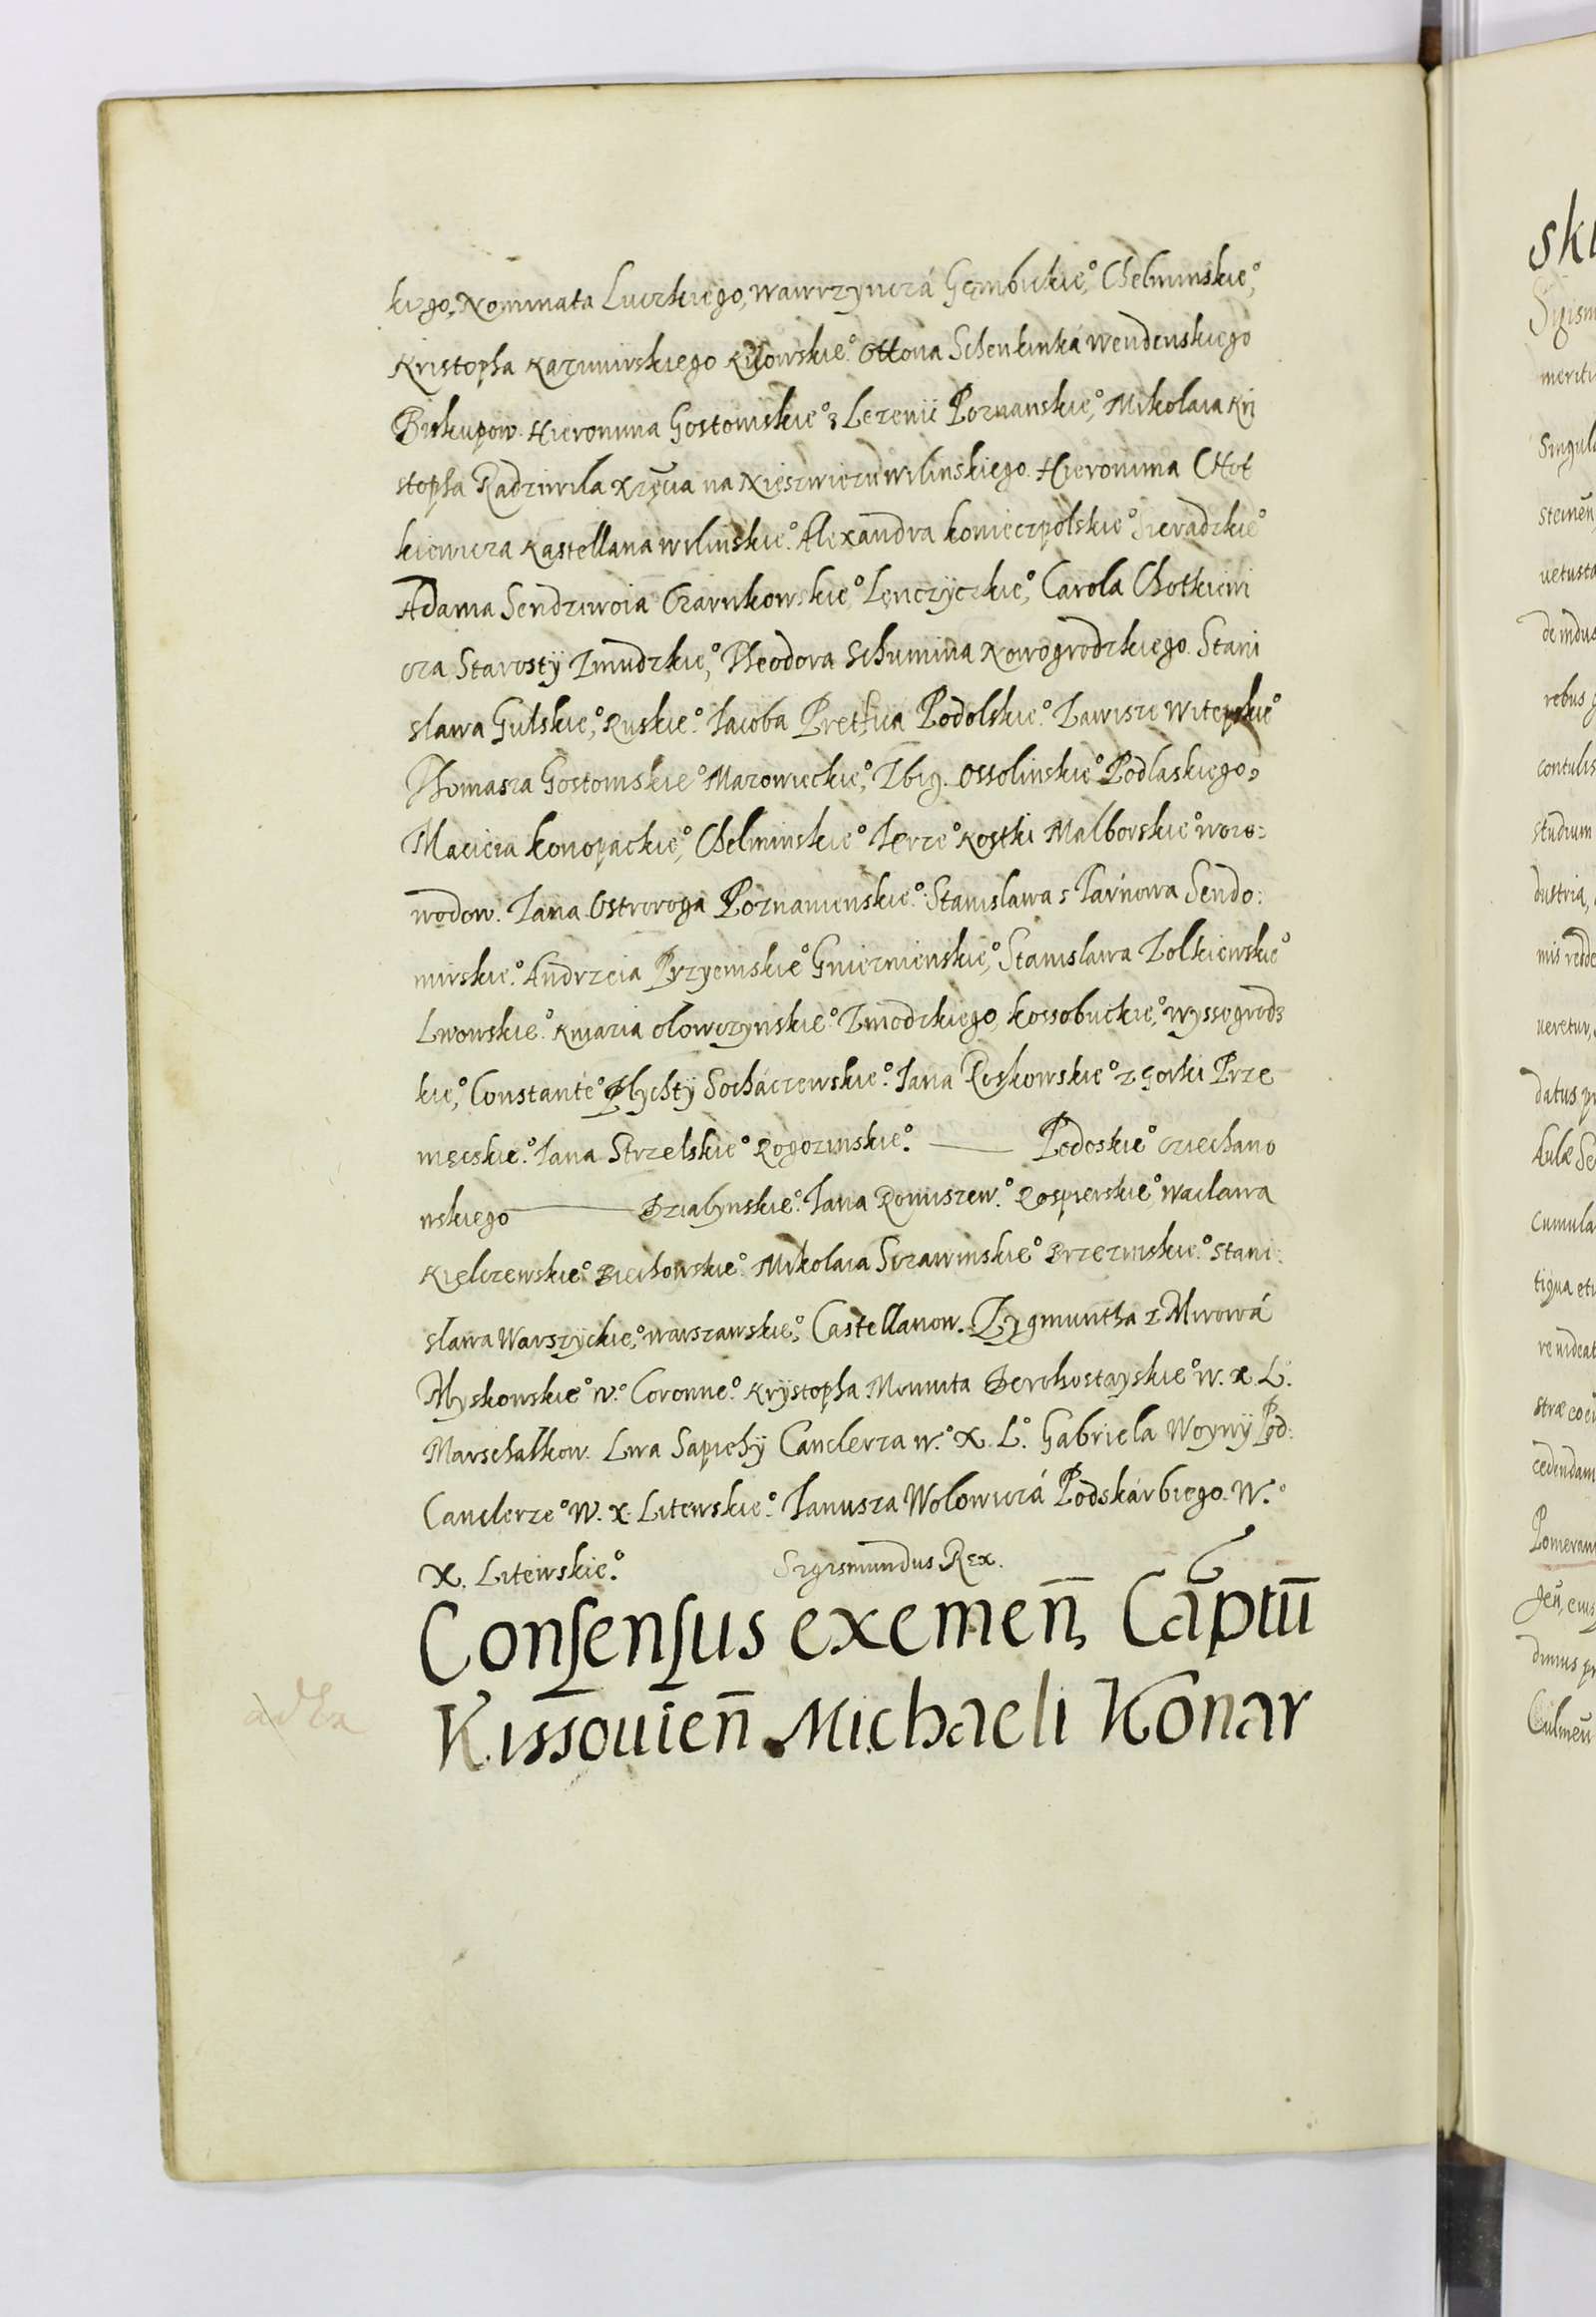 kiego, Nominata Luczkiego, Wawrzynczá Gęmbickie,º Chelminskie,º
Kristopha Kazimirskiego Kijowskie.º Ottona Schenkinká Wendenskiego
Biskupow. Hieronima Gostomskieº z Lezenic Poznanskie,º Mikolaia Kri
stopha Radziwila Xzęcia na Nieszwiezu Wilinskiego. Hieronima Chot
kiewicza Kastellana Wilinskie.º Alexandra Konieczpolskieº Sieradzkieº
Adama Sendziwoia Czarnkowskie,º Lęnczyczkie,º Carola Chotkiewi
cza Starosty Zmudzkie,º Theodora Schumina Nowogrodzkiego. Stani
slawa Gulskie,º Ruskie.º Iacoba Pretfica Podolskie.º Zawisze Witepskieº
Thomasza Gostomskieº Mazowieckie,º Zbig. Ossolinskieº Podlaskiego,
Macieia Konopackie,º Chelminskieº Ierzeº Kostki Malborskieº Woie:
wodow. Iana Ostroroga Poznanienskie.º Stanislawa s Tarnowa Sendo:
mirskie.º Andrzeia Przyemskieº Gnieznienskie,º Stanislawa Zolkiewskieº
Lwowskie.º Knjazia Olowczynskie.º Zmodzkiego, Kossobuckie,º Wyssegrodz
kie,º Constanteº Plychty Sochaczewskie.º Iana Roskowskieº z Gorki Prze
męckie.º Iana Strzelskieº Rogozinskie.º —— Podoskieº Cziechano
wskiego —— Dzialynskie.º Iana Roniszew.º Rospierskie,º Waclawa
Kielczewskie.º Biechowskie.º Mikolaia Szczawinskieº Brzezinskie.º Stani:
slawa Warszyckie,º Warszawskie,º Castellanow. Zygmuntha z Mirowá
Myskowskieº W.º Coronne.º Krystopha Moniuita Dorohostayskieº W. X. L.
Marschalkow. Lwa Sapiehy Canclerza W.º X. L.º Gabriela Woyny Pod:
Canclerzeº W. X. Litewskie.º Ianusza Wolowiczá Podskárbiego. W.º
X. Litewskie.º Sigismundus Rex.
Consensus exemen̄, Cap̄tū
Kissouien̄ Michaeli Konar